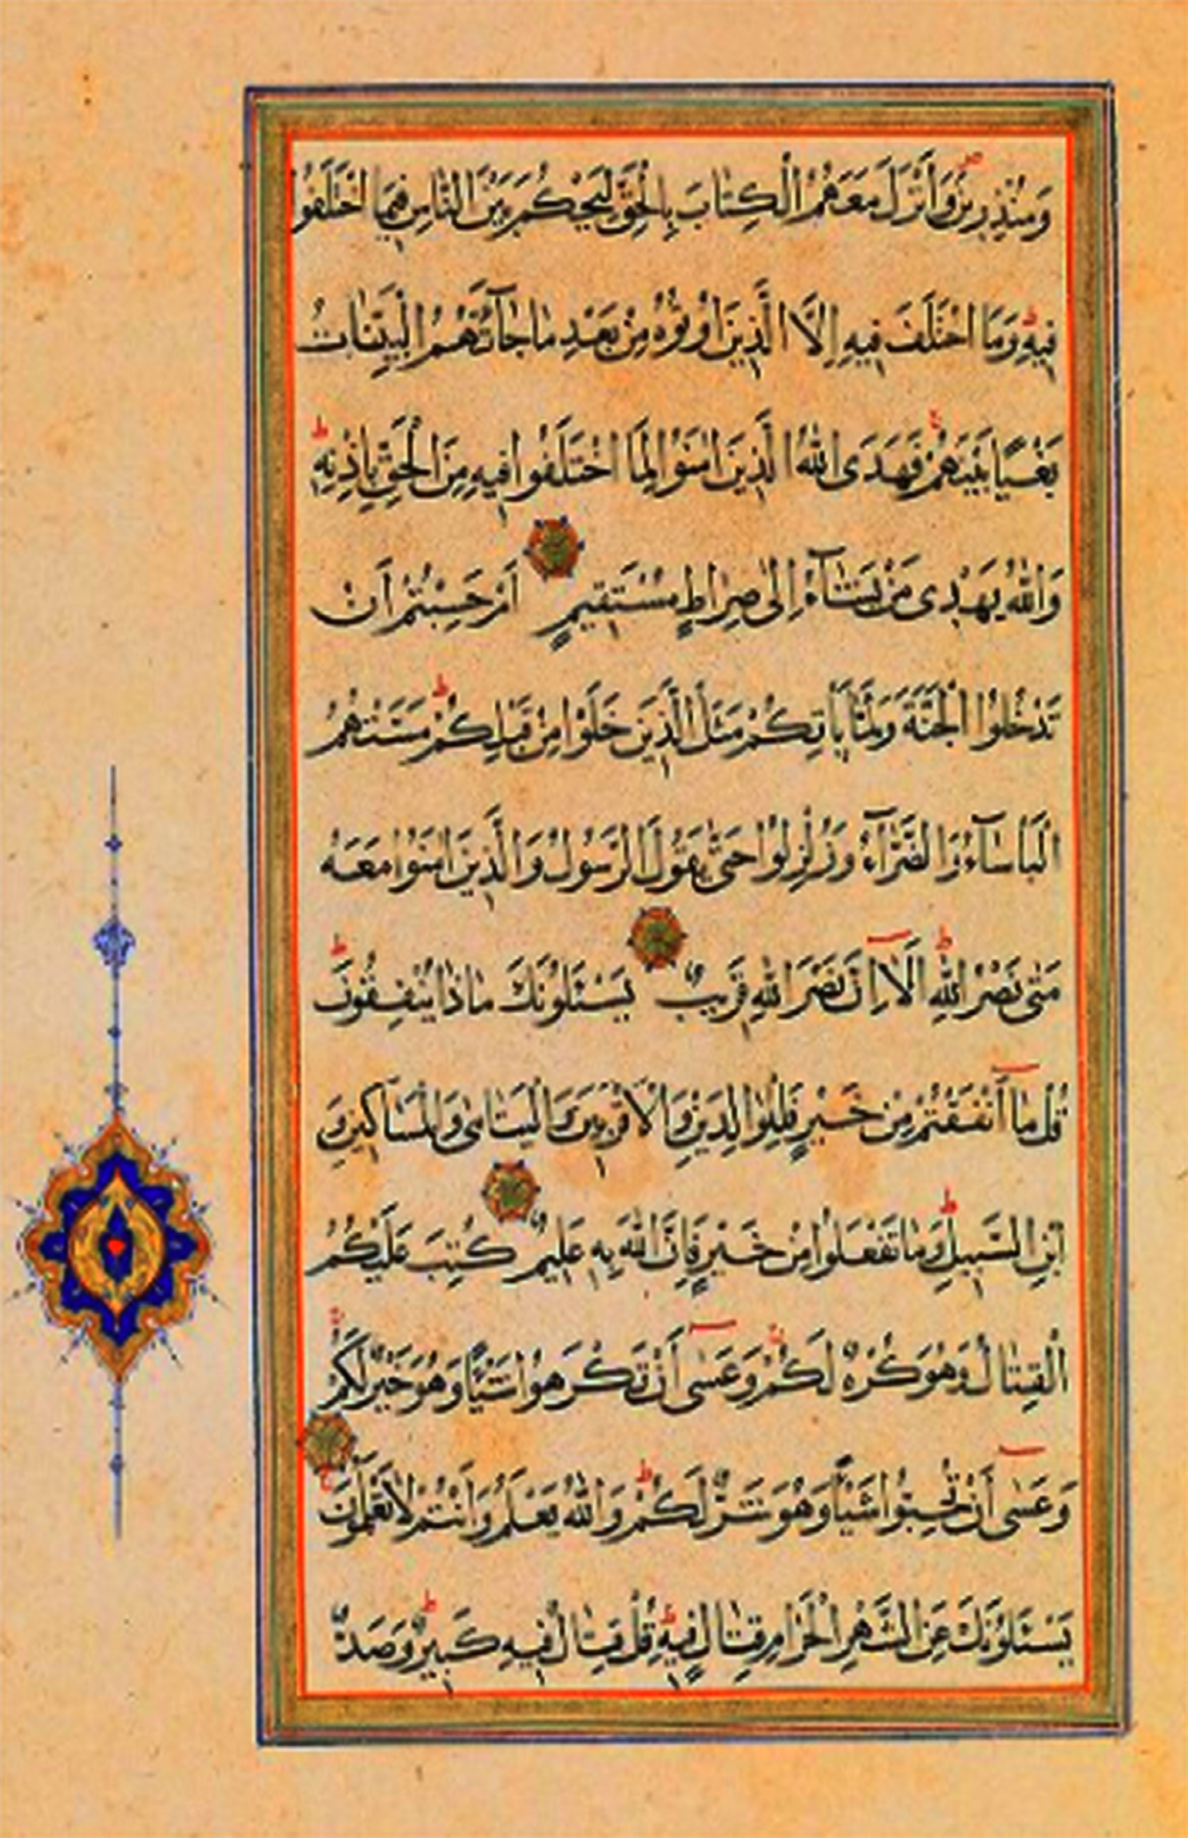 وَمُنْذِرِينَ وَأَنْزَلَ مَعَهُمُ الْكِتَابَ بِالْحَقِّ لِيَحْكُمَ بَيْنَ النَّاسِ فِيمَا اخْتَلَفُوا
فِيهِ وَمَا اخْتَلَفَ فِيهِ إِلَّا الَّذِينَ اُوتُوهُ مِنْ بَعْدِ مَا جَآءَتْهُمُ الْبَيِّنَاتُ
بَغْيًا بَيْنَهُمْ فَهَدَى اللهُ الَّذِينَ اٰمَنُوا لِمَا اخْتَلَفُوا فِيهِ مِنَ الْحَقِّ بِاِذْنِهِ
وَاللهُ يَهْدِى مَنْ يَشَآءُ إِلٰى صِرَاطٍ مُسْتَقِيمٍ اَمْ حَسِبْتُمْ اَنْ
تَدْخُلُوا الْجَنَّةَ وَلَمَّا يَاْتِكُمْ مَثَلُ الَّذِينَ خَلَوْا مِنْ قَبْلِكُمْ مَسَّتْهُمُ
الْبَاْسَآءُ وَالضَّرَّآءُ وَزُلْزِلُوا حَتّٰى يَقُولَ الرَّسُولُ وَالَّذِينَ اٰمَنُوا مَعَهُ
مَتٰى نَصْرُ اللهِ اَلَا اِنَّ نَصْرَ اللهِ قَرِيبٌ يَسْئَلُونَكَ مَاذَا يُنْفِقُونَ
قُلْ مَا اَنْفَقْتُمْ مِنْ خَيْرٍ فَلِلْوَالِدَيْنِ وَالْاَقْرَبِينَ وَالْيَتَامٰى وَالْمَسَاكِينِ وَ
ابْنِ السَّبِيلِ وَمَا تَفْعَلُوا مِنْ خَيْرٍ فَاِنَّ اللهَ بِهِ عَلِيمٌ كُتِبَ عَلَيْكُمُ
الْقِتَالُ وَهُوَ كُرْهٌ لَكُمْ وَعَسٰى اَنْ تَكْرَهُوا شَيْئًا وَهُوَ خَيْرٌ لَكُمْ
وَعَسٰى اَنْ تُحِبُّوا شَيْئًا وَهُوَ شَرٌّ لَكُمْ وَاللهُ يَعْلَمُ وَاَنْتُمْ لَا تَعْلَمُونَ
يَسْئَلُونَكَ عَنِ الشَّهْرِ الْحَرَامِ قِتَالٍ فِيهِ قُلْ قِتَالٌ فِيهِ كَبِيرٌ وَصَدٌّ